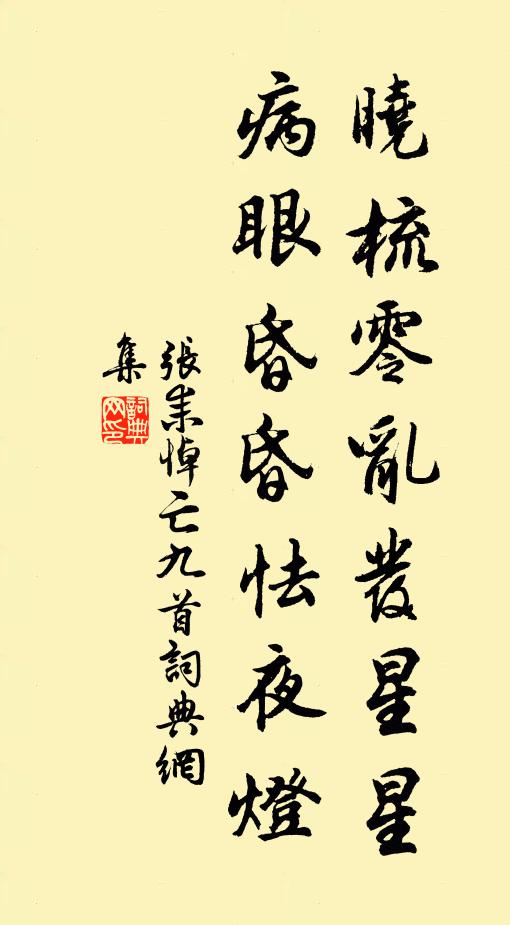 曉梳零亂發星星
病眼昏昏怯夜燈
張耒悼亡九首詞典網
集
詞典
网印